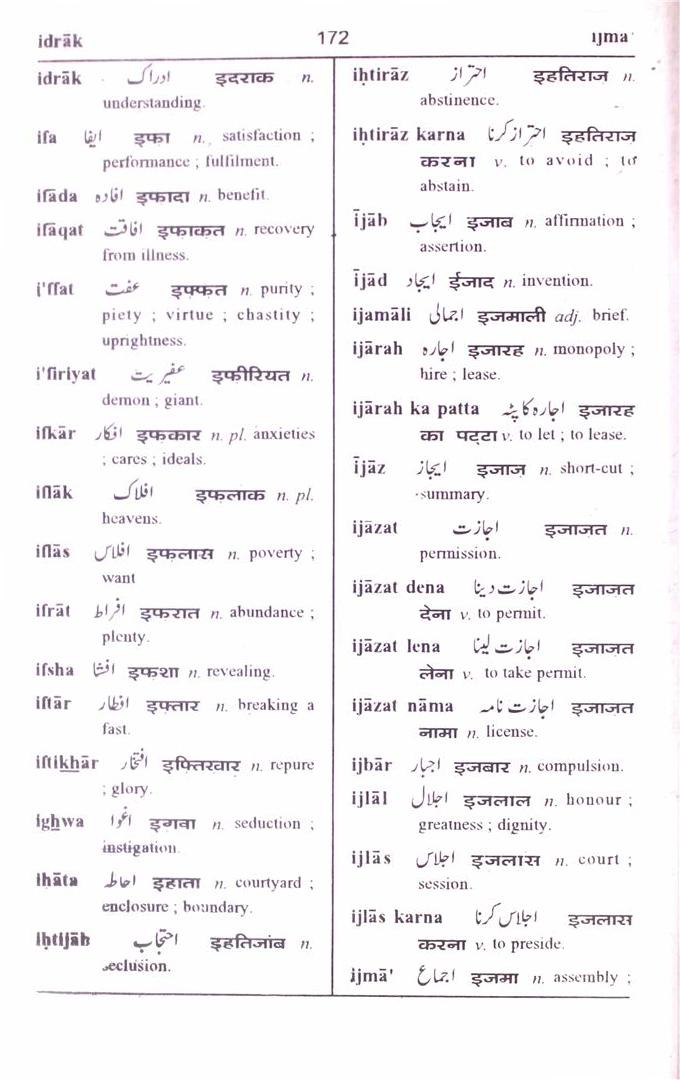 idrāk 172 ijma'
idrāk ادراک इदराक n.
understanding.
ifa ایفا इफा n., satisfaction ;
performance ; fulfilment.
ifāda افادہ इफादा n. benefit.
ifāqat افاقت इफाकत n. recovery
from illness.
i'ffat عفت इफ्फत n. purity ;
piety ; virtue ; chastity ;
uprightness.
i'firiyat عفیریت इफीरियत n.
demon ; giant.
ifkār افکار इफकार n. pl. anxieties
; cares ; ideals.
iflāk افلاک इफलाक n. pl.
heavens.
iflās افلاس इफलास n. poverty ;
want
ifrāt افراط इफरात n. abundance ;
plenty.
ifsha افشا इफशा n. revealing.
iftār افطار इफ्तार n. breaking a
fast.
iftikhār افتخار इफ्तिखार n. repure
; glory.
ighwa اغوا इगवा n. seduction ;
instigation.
ihāta احاطہ इहाता n. courtyard ;
enclosure ; boundary.
iḥtijāb احتجاب इहतिजांब n.
seclusion.
iḥtirāz احتراز इहतिराज n.
abstinence.
iḥtirāz karna احتراز کرنا इहतिराज
करना v. to avoid ; to
abstain.
ījāb ایجاب इजाब n. affirmation ;
assertion.
ījād ایجاد ईजाद n. invention.
ijamāli اجمالی इजमाली adj. brief.
ijārah اجارہ इजारह n. monopoly ;
hire ; lease.
ijārah ka patta اجارہ کا پٹہ इजारह
का पट्टा v. to let ; to lease.
ījāz ایجاز इजाज n. short-cut ;
summary.
ijāzat اجازت इजाजत n.
permission.
ijāzat dena اجازت دینا इजाजत
देना v. to permit.
ijāzat lena اجازت لینا इजाजत
लेना v. to take permit.
ijāzat nāma اجازت نامہ इजाजत
नामा n. license.
ijbār اجبار इजबार n. compulsion.
ijlāl اجلال इजलाल n. honour ;
greatness ; dignity.
ijlās اجلاس इजलास n. court ;
session.
ijlās karna اجلاس کرنا इजलास
करना v. to preside.
ijmā' اجماع इजमा n. assembly ;